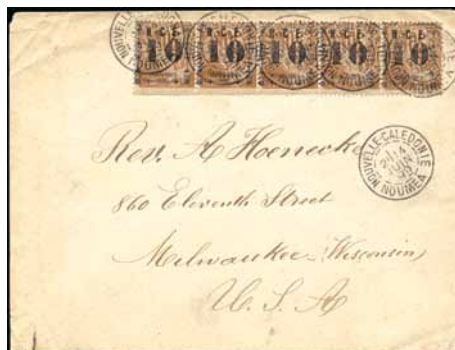 N C E N C E N C E N C E N C E
10 10 10 10 10
NOUVELLE-CALEDONIE
NOUMEA
Rev. A Hoenecke
860 Eleventh Street
Milwaukee (Wisconsin)
U. S. A
NOUVELLE-CALEDONIE
JUIN
NOUMEA